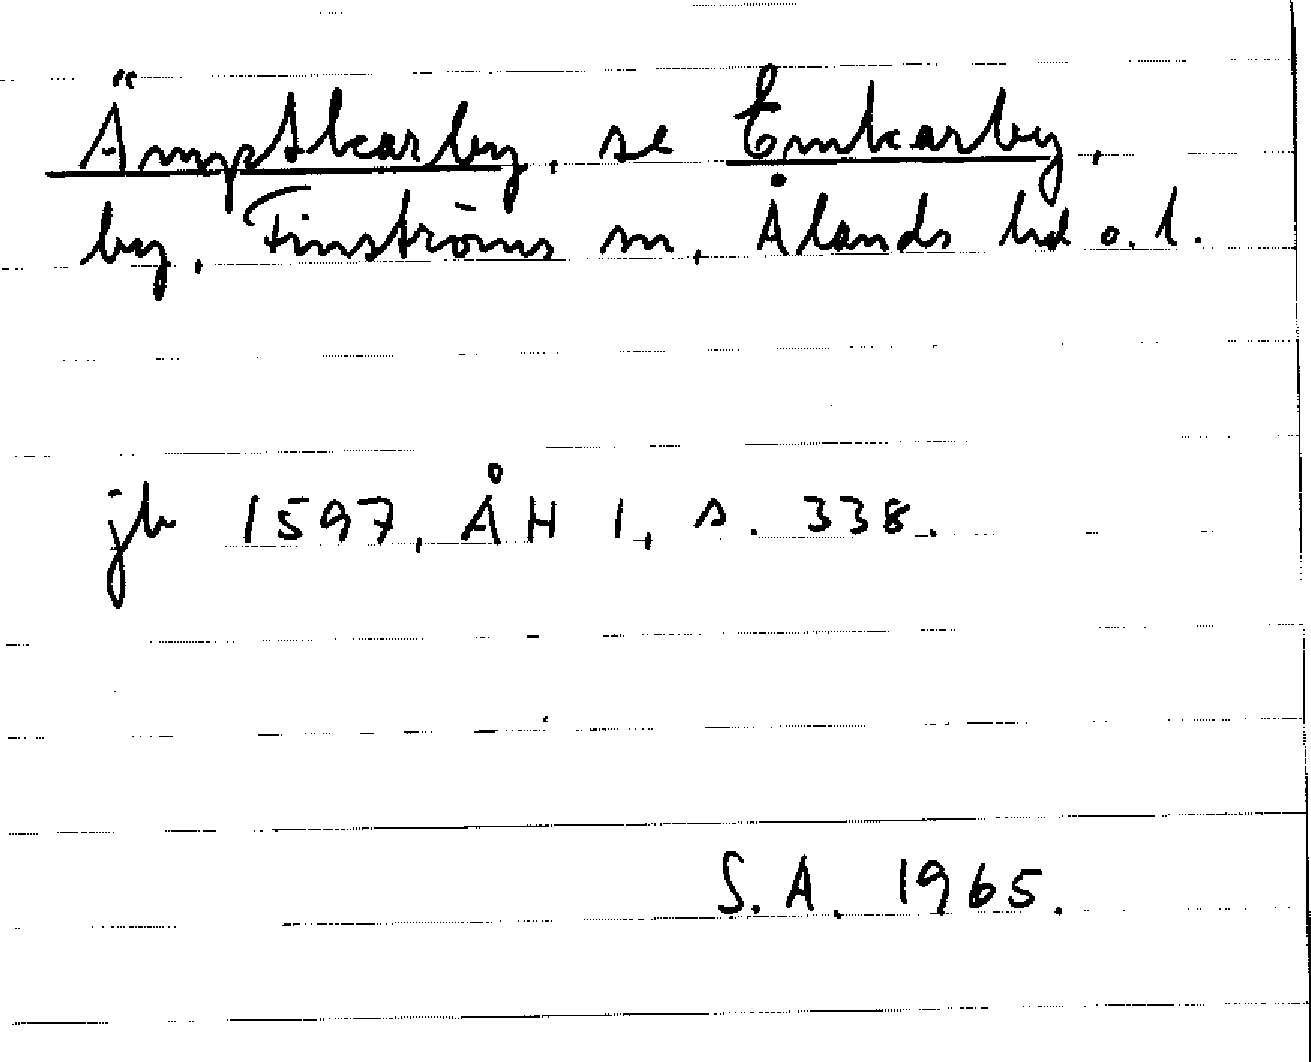 Ämptkarby, se Emkarby,
by, Finströms sn, Ålands hd o. l.
jb 1597, ÅH 1, s. 338.
S.A. 1965.